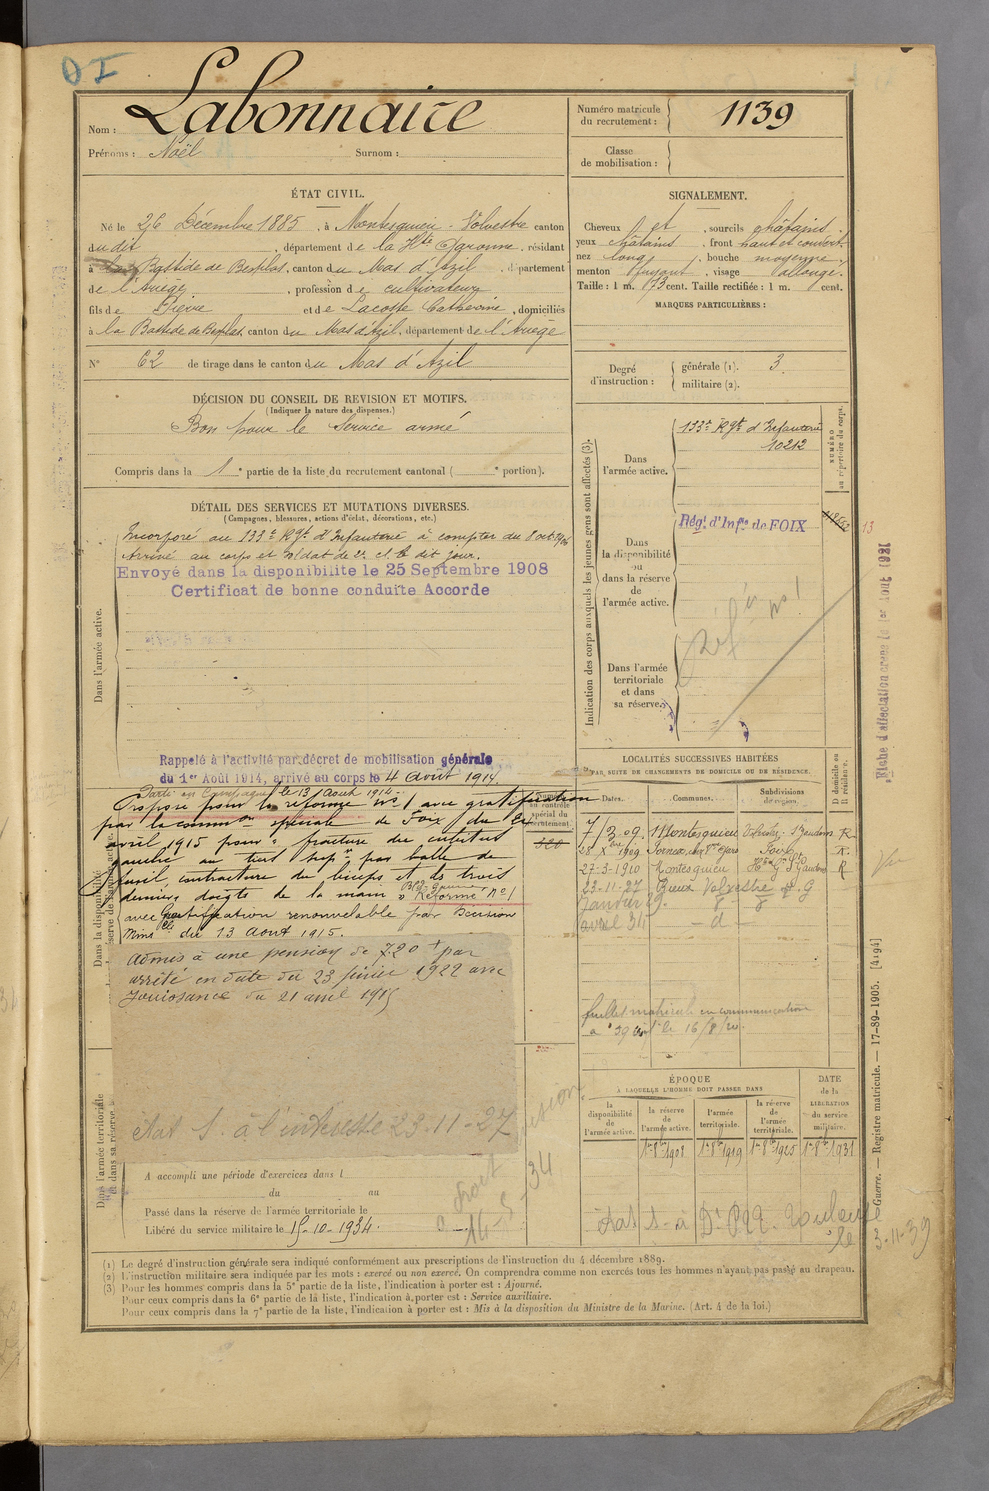 DI
Nom : Labonnaire
Prénoms : Noël Surnom :
Numéro matricule du recrutement : 1139
Classe de mobilisation :
ÉTAT CIVIL.
Né le 26 Décembre 1885, à Montesquieu-Volvestre canton
dudit, département de la Hte Garonne, résidant
à La Bastide de Besplas, canton du Mas d'Azil, département
de l'Ariège, profession de cultivateur
fils de Pierre et de Lacoste Catherine, domiciliés
à la Bastide de Besplas, canton du Mas d'Azil, département de l'Ariège
N° 62 de tirage dans le canton du Mas d'Azil
SIGNALEMENT.
Cheveux et sourcils châtains
yeux châtains, front haut et couvert
nez long, bouche moyenne,
menton fuyant, visage allongé.
Taille : 1 m. 73 cent. Taille rectifiée : 1 m. cent.
MARQUES PARTICULIÈRES :
Degré d'instruction : générale (1). 3
militaire (2).
DÉCISION DU CONSEIL DE REVISION ET MOTIFS.
(Indiquer la nature des dispenses.)
Bon pour le service armé
Compris dans la 1e partie de la liste du recrutement cantonal ( e portion).
DÉTAIL DES SERVICES ET MUTATIONS DIVERSES.
(Campagnes, blessures, actions d'éclat, décorations, etc.)
Dans l'armée active.
Incorporé au 133e Rgt d'Infanterie à compter du 8 oct 1906
Arrivé au corps et soldat de 2e cl. le dit jour.
Envoyé dans la disponibilité le 25 Septembre 1908
Certificat de bonne conduite Accordé
Rappelé à l'activité par décret de mobilisation générale
du 1er Août 1914, arrivé au corps le 4 août 1914.
Parti en Campagne le 13 Août 1914.
Proposé pour la réforme n° 1 avec gratification
par la common spéciale de Foix du 21
avril 1915 pour " fracture du cubitus
gauche au tiers supr par balle de
fusil contracture du biceps et des trois
derniers doigts de la main " Réformé N° 1
avec Gratification renouvelable par Décision
Minislle du 13 Août 1915.
Admis à une pension de 720 f par
arrêté en date du 23 février 1922 avec
Jouissance du 21 avril 1915
Etat S. à l'intéressé 23-11-27
Dans l'armée territoriale et dans sa réserve.
A accompli une période d'exercices dans l
du au
Passé dans la réserve de l'armée territoriale le
Libéré du service militaire le 15-10-1934.
Numéro au contrôle spécial du recrutement.
320
Indication des corps auxquels les jeunes gens sont affectés (3).
NUMÉRO au répertoire du corps.
Dans l'armée active.
133e Rgt d'Infanterie
10212
Dans la disponibilité ou dans la réserve de l'armée active.
Régt d'Infie de FOIX
Dans l'armée territoriale et dans sa réserve.
Fiche d'affectation créée le 1er Août 1921
LOCALITÉS SUCCESSIVES HABITÉES
PAR SUITE DE CHANGEMENTS DE DOMICILE OU DE RÉSIDENCE.
Dates. Communes. Subdivisions de région. D domicile ou R résidence.
7/3 09. Montesquieu Volvestre St Gaudens R
28 Xbre 1909 Fornex Foix R.
27-3-1910 Montesquieu Hte G St Gaudens R
23-11-27 Rieux Volvestre H. G
Janvier 29.
avril 31 - d -
feuillet matricule en communication
le 16/8/20.
ÉPOQUE
À LAQUELLE L'HOMME DOIT PASSER DANS
la disponibilité de l'armée active.
la réserve de l'armée active.
l'armée territoriale.
la réserve de l'armée territoriale.
DATE de la LIBÉRATION du service militaire.
1er 8bre 1908 1er 8bre 1919 1er 8bre 1925 1er 8bre 1931
Etat S- à Toulouse
le 3-11-39
Guerre. — Registre matricule. — 17-89-1905. [4194]
(1) Le degré d'instruction générale sera indiqué conformément aux prescriptions de l'instruction du 4 décembre 1889.
(2) L'instruction militaire sera indiquée par les mots : exercé ou non exercé. On comprendra comme non exercés tous les hommes n'ayant pas passé au drapeau.
(3) Pour les hommes compris dans la 5e partie de la liste, l'indication à porter est : Ajourné.
Pour ceux compris dans la 6e partie de la liste, l'indication à porter est : Service auxiliaire.
Pour ceux compris dans la 7e partie de la liste, l'indication à porter est : Mis à la disposition du Ministre de la Marine. (Art. 4 de la loi.)